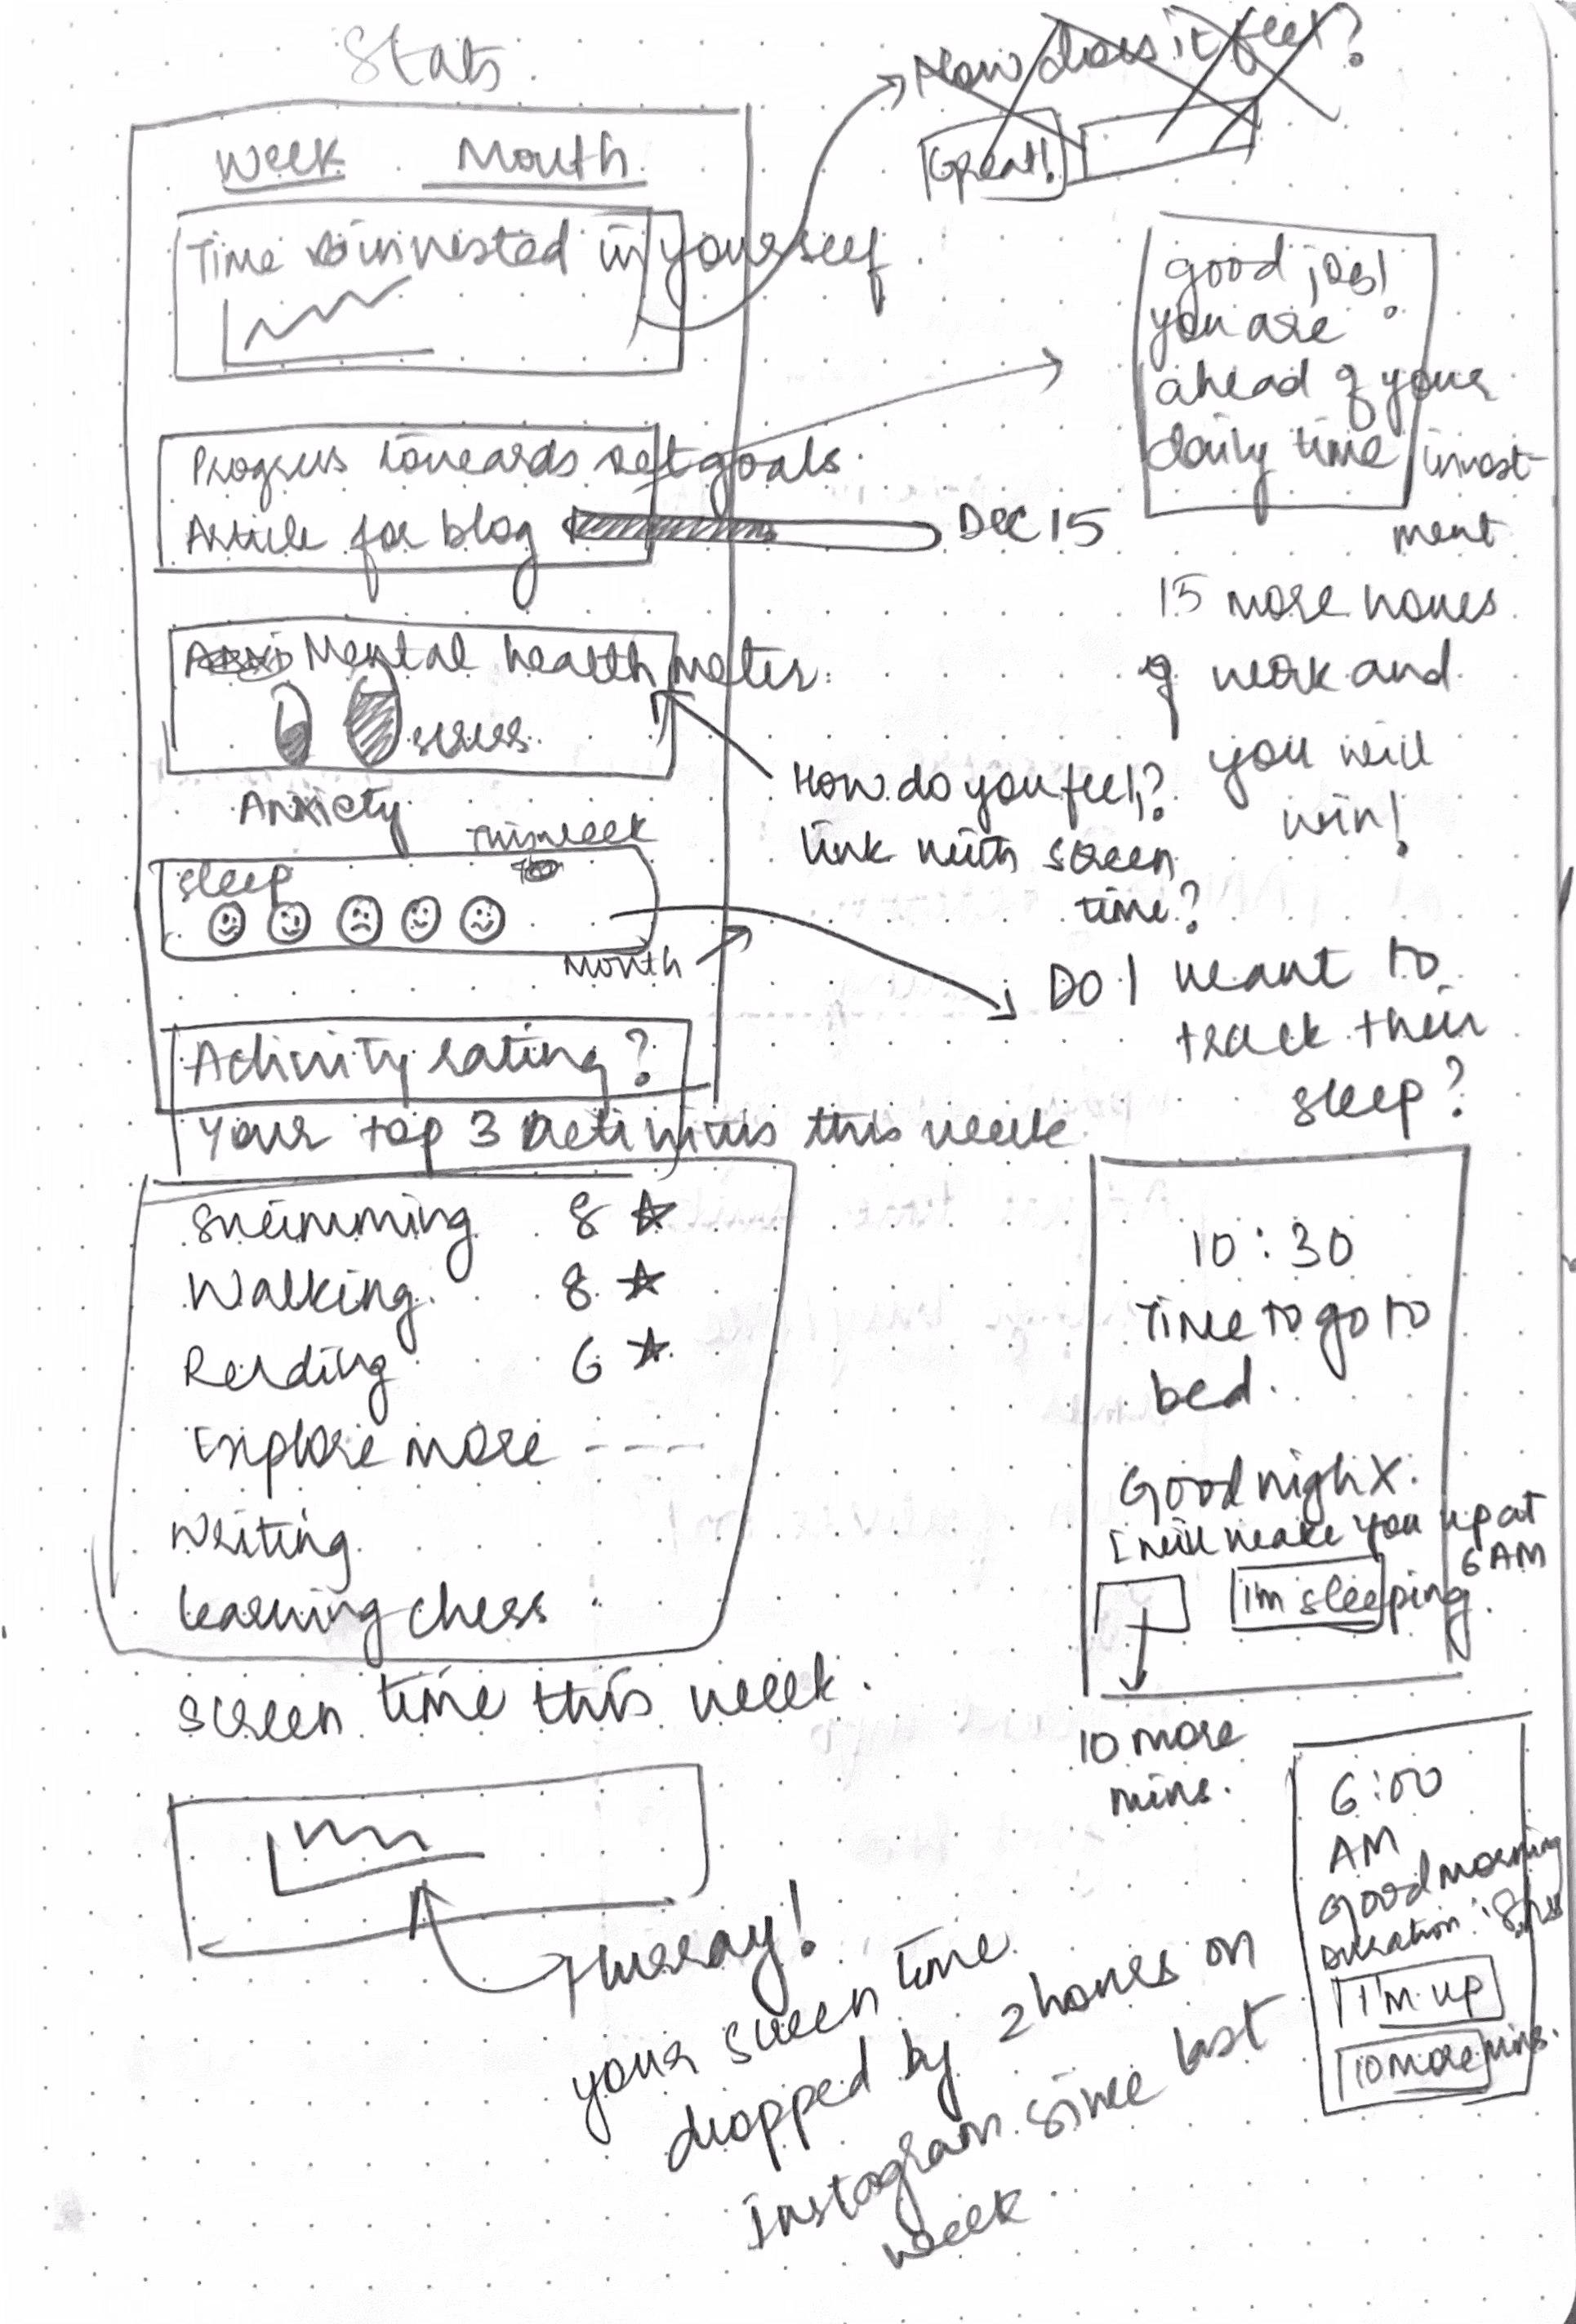 Stats
Week Month
Time invested in yourself
How does it feel?
Great!
good job!
you are
ahead of your
daily time invest-
ment
15 more hours
of work and
you will
win!
Progress towards set goals
Article for blog
DEC 15
Mental health meter
stress
Anxiety
How do you feel?
link with screen
time?
This week
Sleep
Month
Do I want to
track their
sleep?
Activity rating?
Your top 3 activities this week
Swimming 8
Walking 8
Reading 6
Explore more ----
Writing
Learning chess
10:30
Time to go to
bed.
Good night.
I will wake you up at
6 AM
I'm sleeping
10 more
mins.
Screen time this week.
Hurray!
your screen time
dropped by 2 hours on
Instagram since last
week
6:00
AM
Good morning
Duration: 8hrs
I'm up
10 more mins.